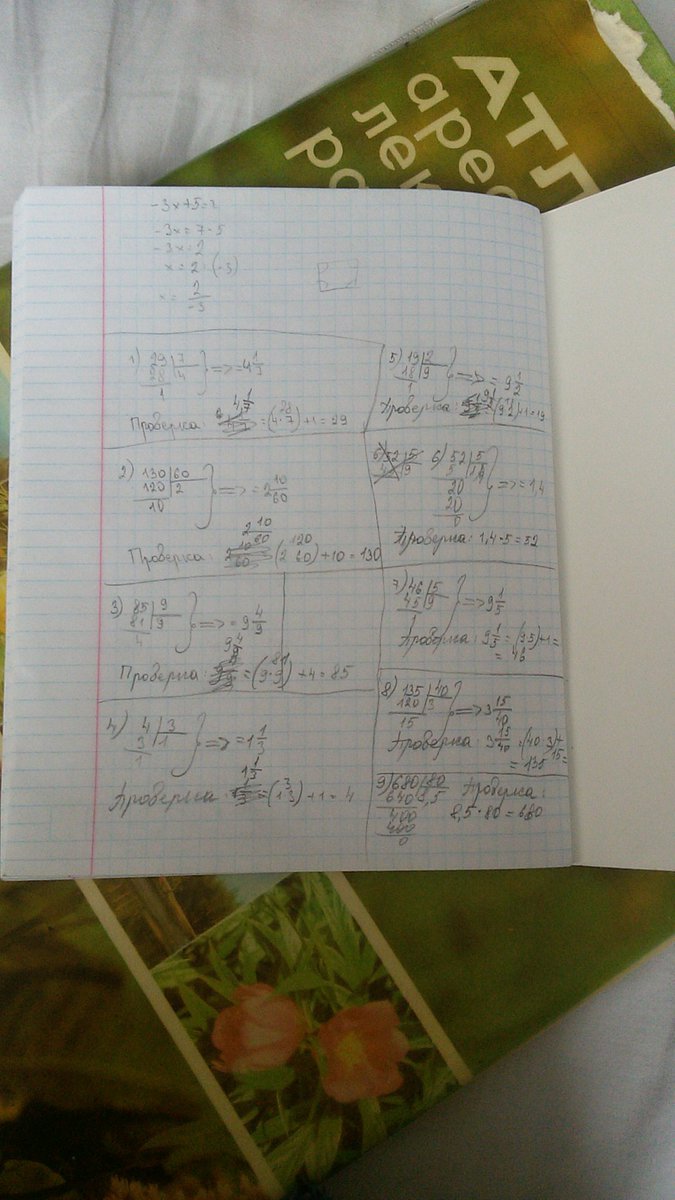 АТЛ
арео
лек
ра
-3x+5=7
-3x=7-5
-3x=2
x=2:(-3)
x=2/-3
1) 29|7 => =4 1/7
28|4
1
Проверка: 4 1/7 =(4·7)+1=29
28
2) 130|60 => =2 10/60
120|2
10
Проверка: 2 10/60 (2·60)+10=130
120
3) 85|9 => =9 4/9
81|9
4
Проверка: 9 4/9 =(9·9)+4=85
81
4) 4|3 => =1 1/3
3|1
1
Проверка: 1 1/3 =(1·3)+1=4
3
5) 19|2 => =9 1/2
18|9
1
Проверка: =(9·2)+1=19
6) 52|5
6) 52|5 => =1,4
5
20
20
0
Проверка: 1,4·5=52
7) 46|5 => 9 1/5
45|9
Проверка: 9 1/5 =(9·5)+1=
=46
8) 135|40 => 3 15/40
120|3
15
Проверка: 3 15/40 =(40·3)+
15=
=135
9) 680|80 Проверка:
640|8,5 8,5·80=680
400
400
0